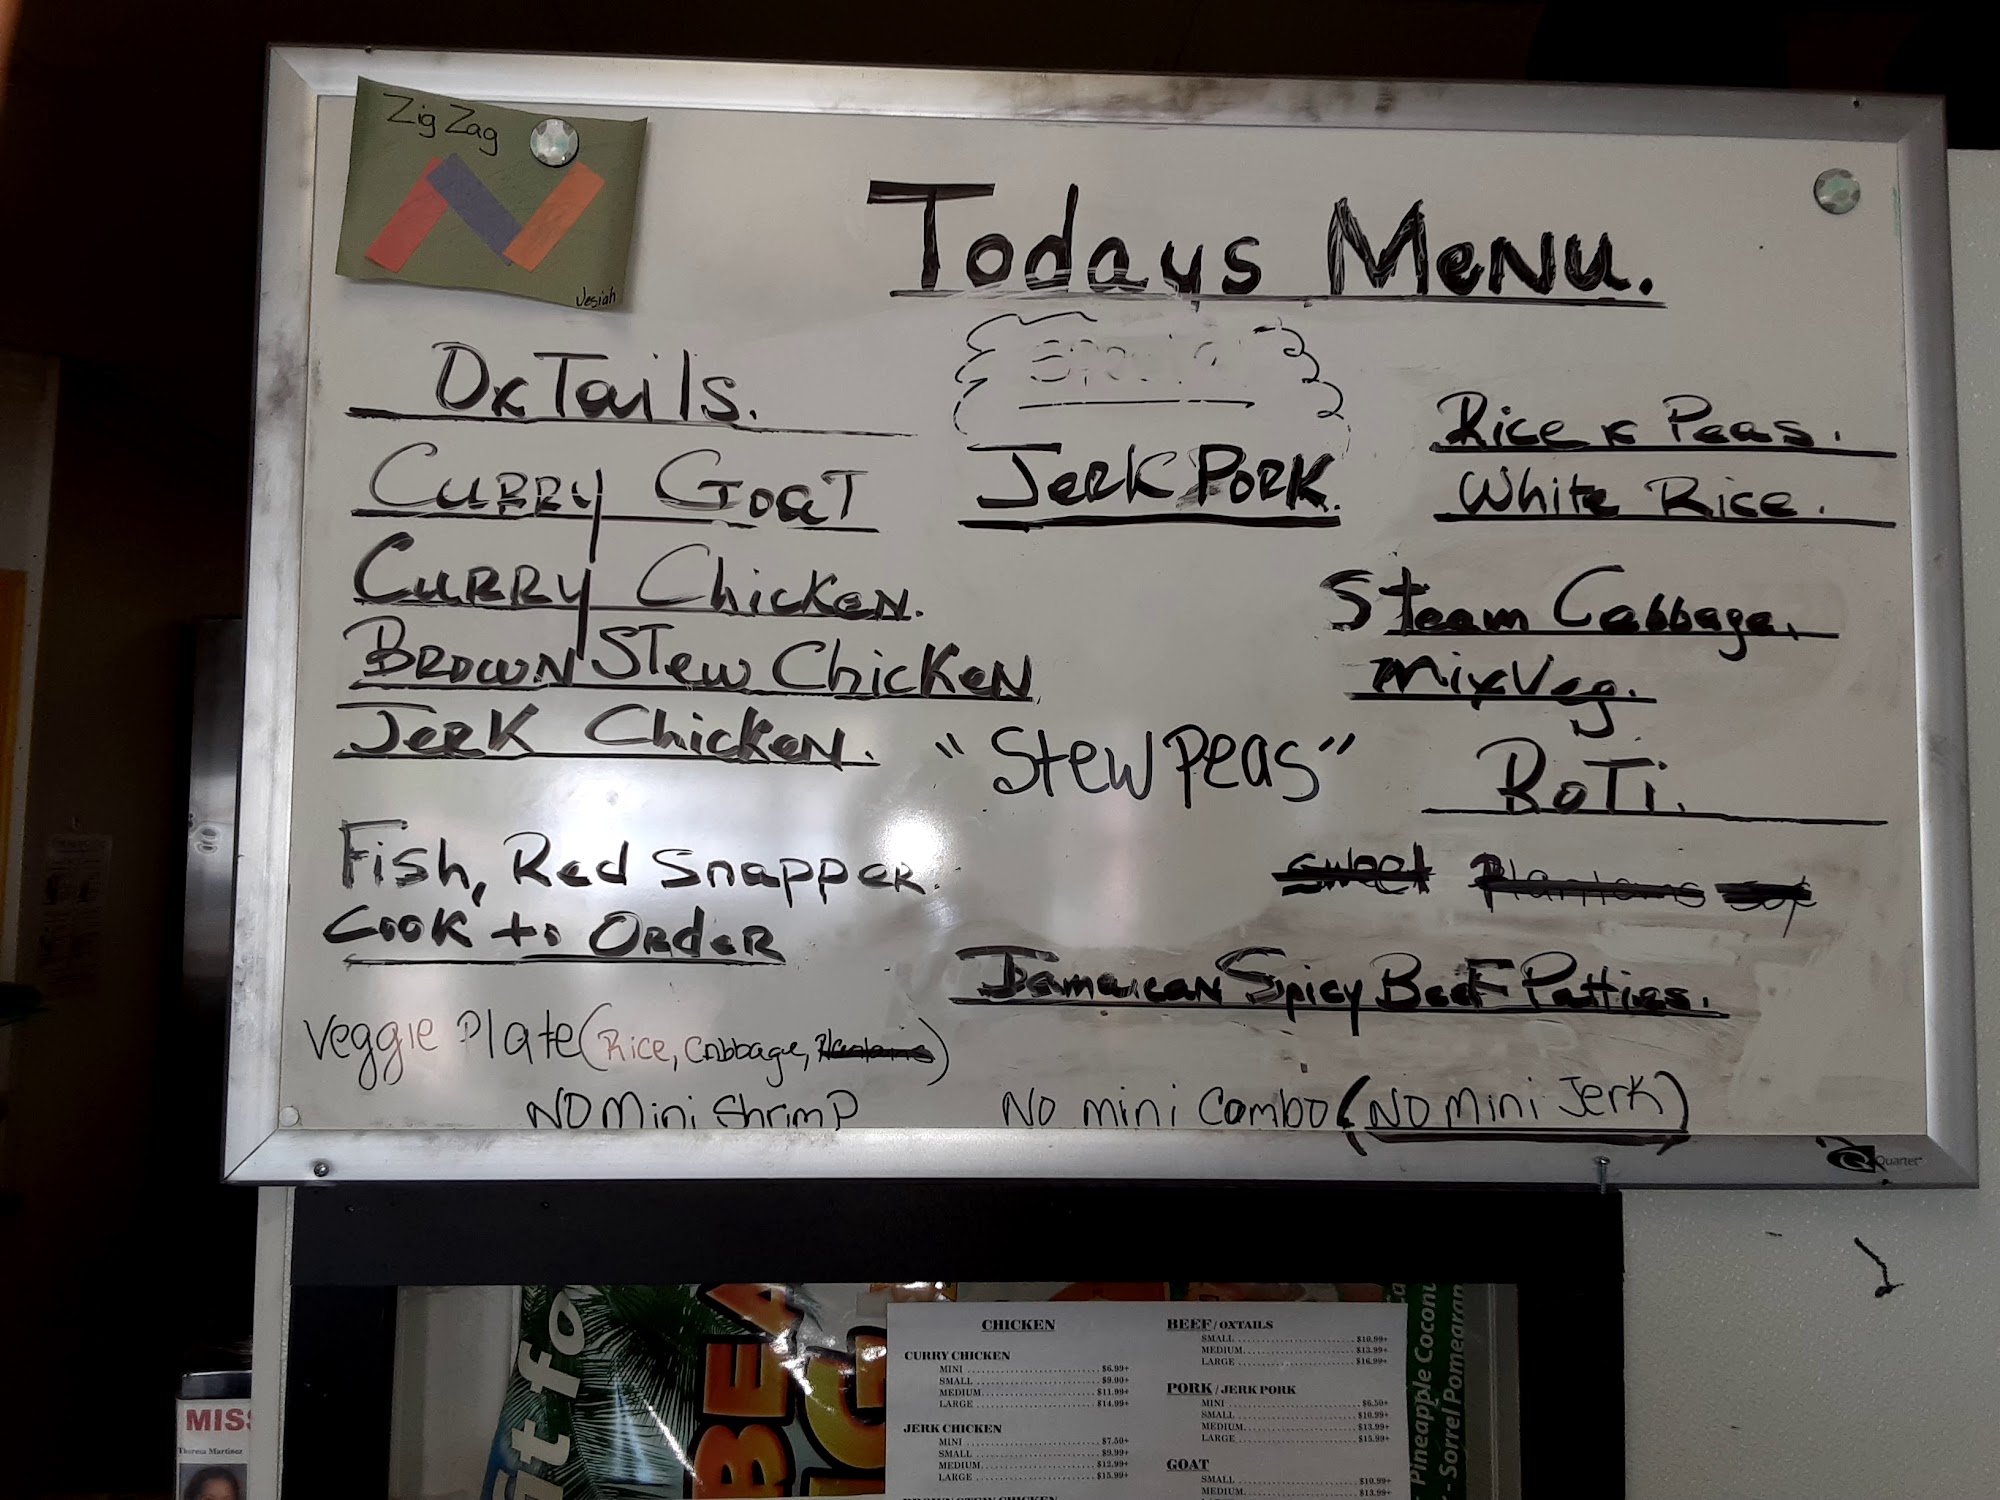 Zig Zag
Jesiah
Todays Menu.
Special
OxTails.
Curry Goat
Curry Chicken.
Brown Stew Chicken
Jerk Chicken.
Fish, Red Snapper
Cook to Order
Veggie Plate (Rice, Cabbage, Plantains)
No mini Shrimp
Jerk Pork.
"Stew Peas"
Rice & Peas.
White Rice.
Steam Cabbage.
Mix Veg.
RoTi.
sweet Plantains
Jamaican Spicy Beef Patties.
No mini Combo (No mini Jerk)
Quartet
at for
BEA
G
CHICKEN
CURRY CHICKEN
MINI $6.99+
SMALL $9.00+
MEDIUM $11.99+
LARGE $14.99+
JERK CHICKEN
MINI $7.50+
SMALL $9.99+
MEDIUM $12.99+
LARGE $15.99+
BROWN STEW CHICKEN
BEEF / OXTAILS
SMALL $10.99+
MEDIUM $13.99+
LARGE $16.99+
PORK / JERK PORK
MINI $6.50+
SMALL $10.99+
MEDIUM $13.99+
LARGE $15.99+
GOAT
SMALL $10.99+
MEDIUM $13.99+
- Pineapple Coconu
- Sorrel Pomegran
MISS
Theresa Martinez